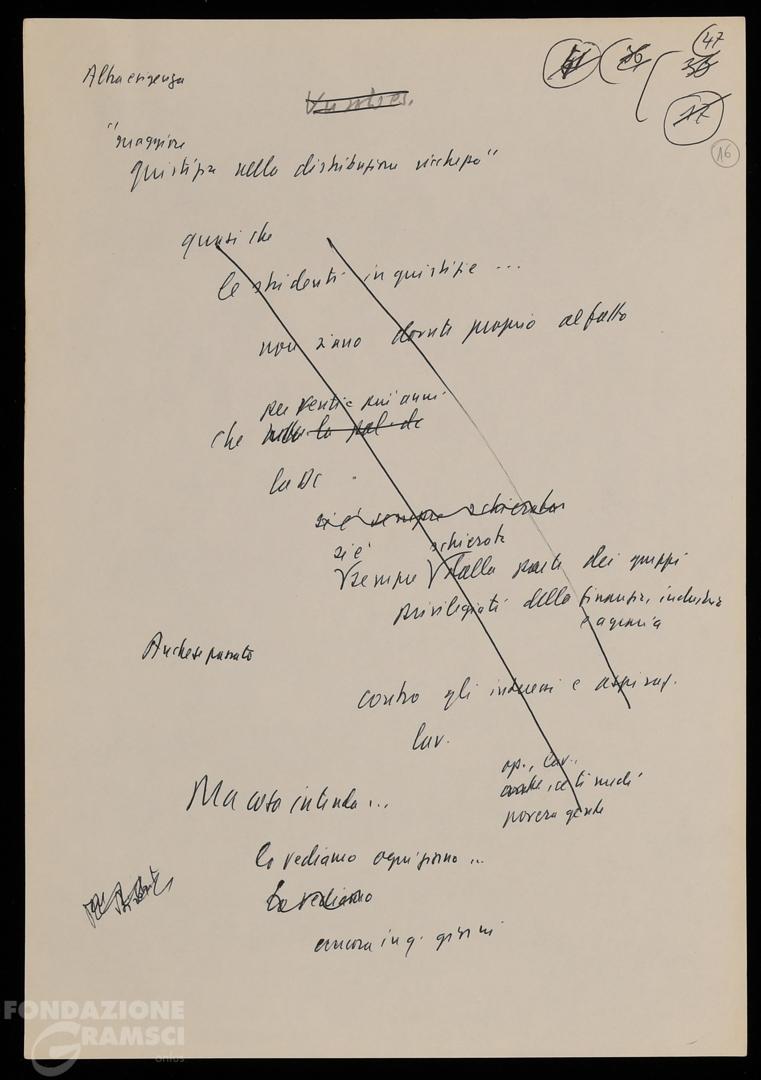 47
36
17
16
Altra esigenza
"maggiore
giustizia nella distribuzione ricchezza"
quasi che
le stridenti ingiustizie ...
non siano dovute proprio al fatto
per venti e più anni
che
la DC
si è sempre schierata
si è schierata
sempre dalla parte dei gruppi
privilegiati della finanza, industria
e agraria
Anche se passato
contro gli interessi e aspiraz.
lav.
op., lav.,
ceti medi
povera gente
Ma cosa intenda ...
lo vediamo ogni giorno ...
Lo vediamo
ancora in q. giorni
FONDAZIONE
GRAMSCI
onlus